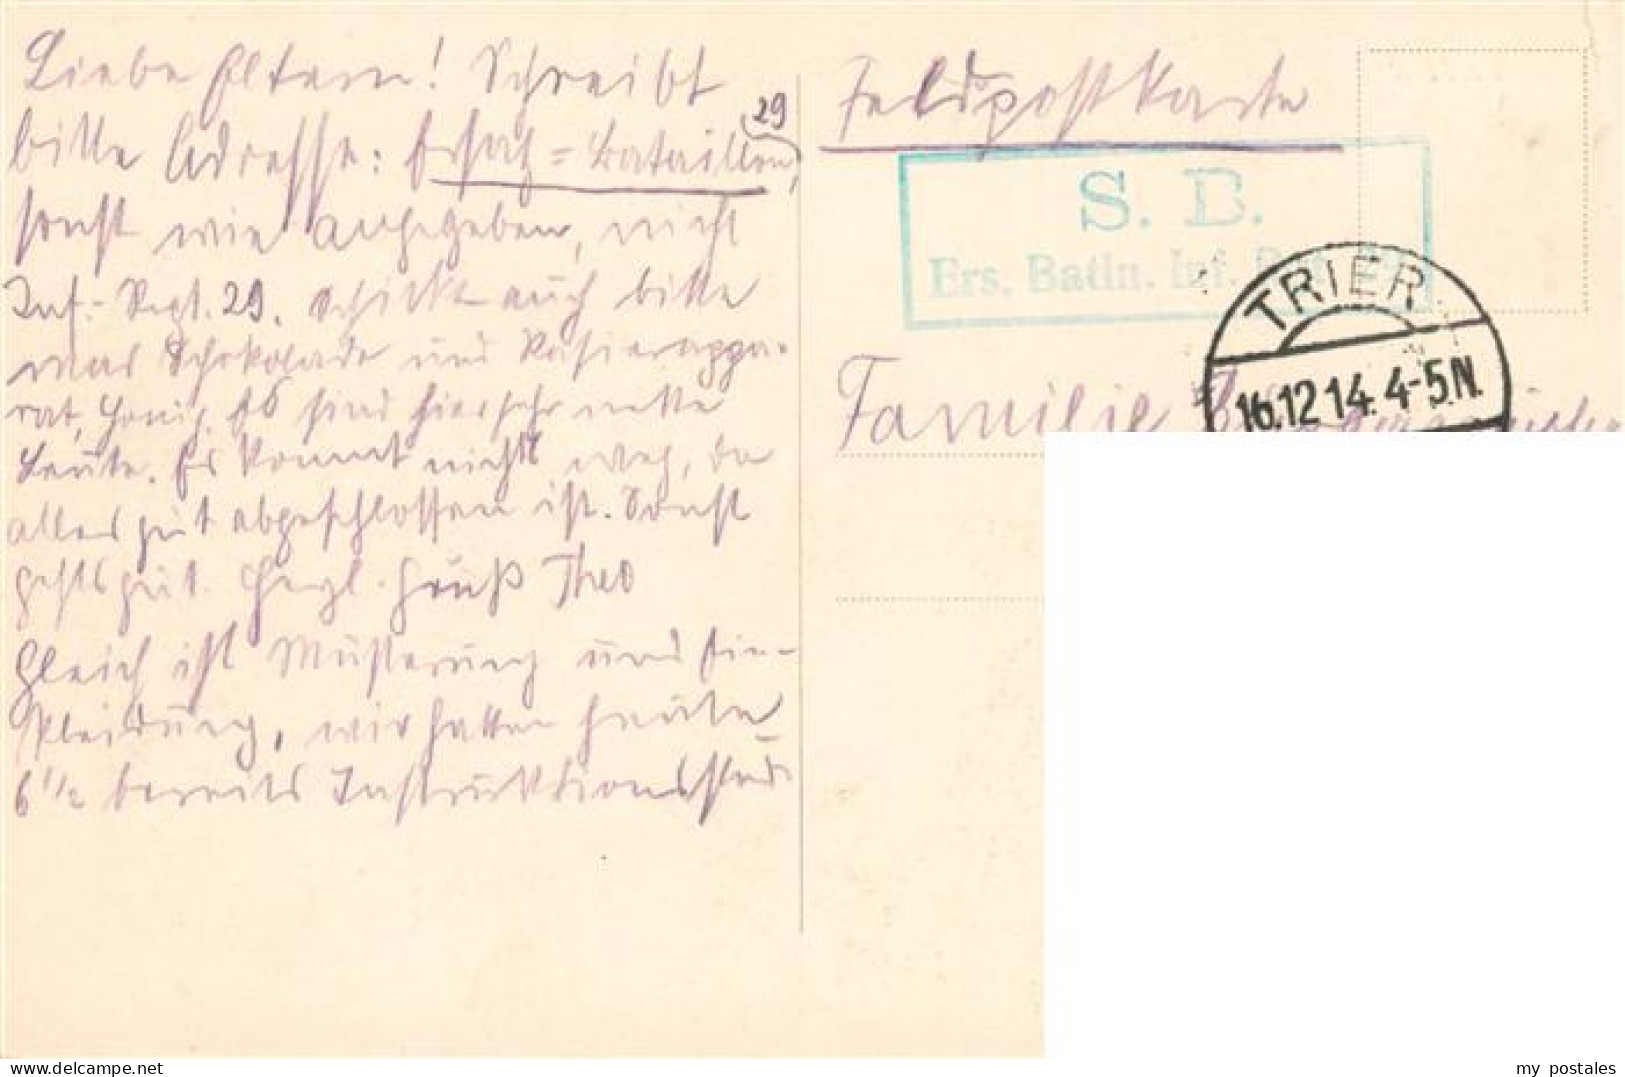 Liebe Eltern! Schreibt
bitte Adresse: Ersatz=Bataillon 29,
sonst wie angegeben, nicht
Inf.-Regt. 29. Schickt auch bitte
was Schokolade und Rasierappa-
rat, Honig. Es sind hier sehr nette
Leute. Es kommt nichts weg, da
alles gut abgeschlossen ist. Sonst
gehts gut. Herzl. Gruß Theo
Gleich ist Musterung und Ein-
kleidung, wir hatten heute
6 1/2 bereits Instruktionsstd.
Feldpostkarte
S. B.
Ers. Batln. Inf.
TRIER
16.12 14. 4-5 N.
Familie
my postales